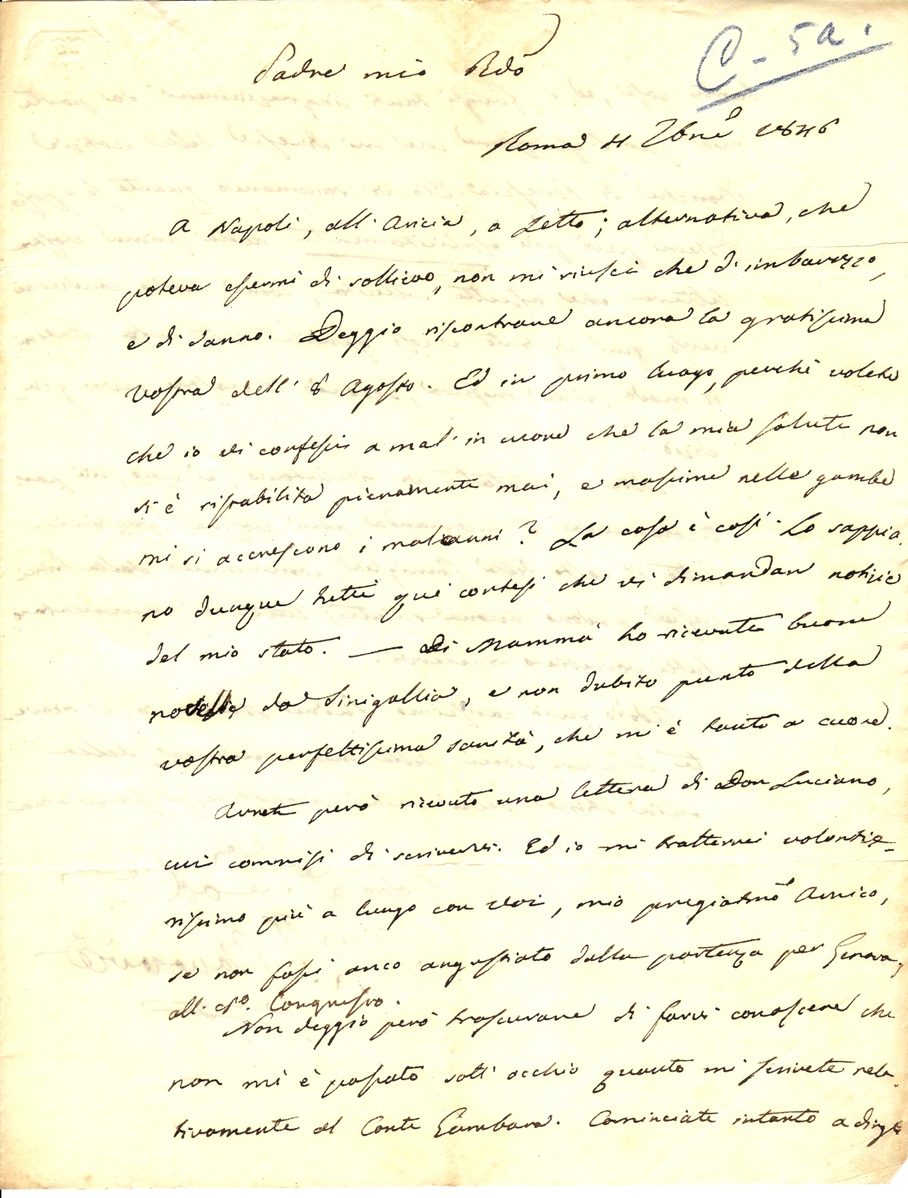 C - 5a.
Padre mio Rdo
Roma 4 7bre 1846
A Napoli, all' Aricia, a letto; alternativa, che
poteva essermi di sollievo, non mi riuscì che d'imbarazzo,
e di danno. Deggio riscontrare ancora la gratissima
Vostra dell' 8 Agosto. Ed in primo luogo, perchè volete
che io vi confessi a mal' in cuore che la mia salute non
si è ristabilita pienamente mai, e massime nelle gambe
mi si accrescono i malanni? La cosa è così. Lo sappia
no dunque tutti quei cortesi che vi dimandan notizie
del mio stato. — Di Mammà ho ricevute buone
novelle da Sinigallia, e non dubito punto della
vostra perfettissima sanità, che mi è tanto a cuore.
Avrete però ricevuto una lettera di Don Luciano,
cui commisi di scrivervi. Ed io mi tratterrei volontie-
rissimo più a lungo con Voi, mio pregiatmo Amico,
se non fossi anco angustiato dalla partenza per Genova,
all. Congresso.
Non deggio però trascurare di farvi conoscere che
non mi è passato sott' occhio quanto mi scrivete rela-
tivamente al Conte Gambara. Cominciate intanto a